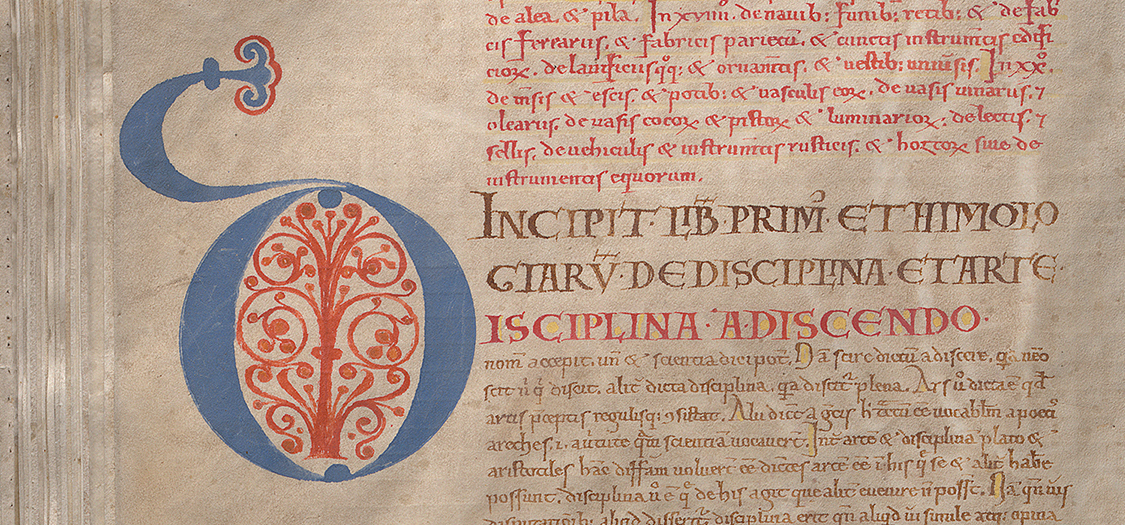 de alea, & pila. In xviiii. de navib; funib; retib; & de fab
cis ferrariis, & fabricis parietū, & cunctis instrumtis edifi
cioꝝ. de lanificiis qͦq; & ornamtis, & vestib; univsis. In xxͦ.
de msis & escis, & potib; & vasculis eoꝝ, de vasis vinariis, ⁊
oleariis, de vasis cocoꝝ & pistoꝝ & luminarioꝝ, de lectis, ⁊
sellis, de vehiculis & instrumtis rusticis, & hortoꝝ sive de
instrumentis equorum.
INCIPIT · LIB̄ · PRIM᷒ · ETHIMOLO
GIARV̄ · DE DISCIPLINA · ET ARTE ·
DISCIPLINA · A DISCENDO ·
nom̄ accepit. un̄ & scientia dici pot̄. Nā scire dictū a discere, qa nēo
scit discit. alit̄ dicta disciplina, qa discit plena. Ars ū dicta ē qd
artis pceptis regulisq; ꝯsistat. Alii dict a gcis h tctū ēē vocablm apo
areches, i. a ūtute qm scientiā vocavert. Int arte & disciplina plato &
aristotiles hāc diffām voluert ēē dictes arte ēē ī his q se & alit habe
possunt. disciplina ū ē q de his agit que alit evenire n poss̄t. Nā qn vis
disputationib; aliqd dissert disciplina erit qn aliqd ūi simile atq; opina